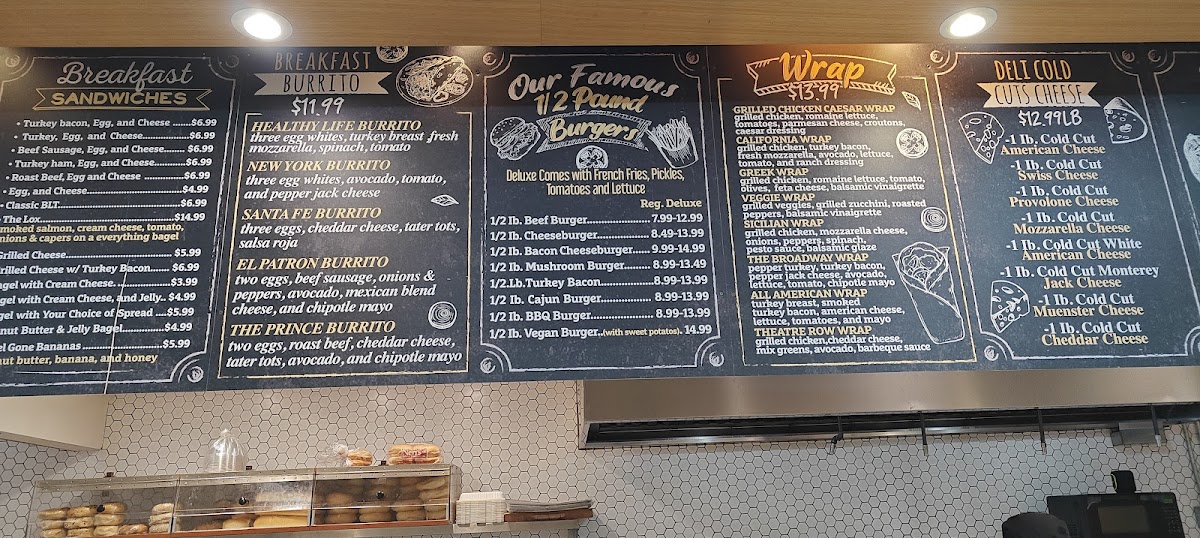 Breakfast
SANDWICHES
• Turkey bacon, Egg, and Cheese .......$6.99
• Turkey, Egg, and Cheese............$6.99
• Beef Sausage, Egg, and Cheese........ $6.99
• Turkey ham, Egg, and Cheese..........$6.99
• Roast Beef, Egg and Cheese .............$6.99
• Egg, and Cheese.............................$4.99
• Classic BLT.................................$6.99
The Lox.....................................$14.99
smoked salmon, cream cheese, tomato,
onions & capers on a everything bagel
Grilled Cheese...............................$5.99
Grilled Cheese w/ Turkey Bacon....... $6.99
Bagel with Cream Cheese.................$3.99
Bagel with Cream Cheese, and Jelly..$4.99
Bagel with Your Choice of Spread ....$5.99
Peanut Butter & Jelly Bagel..............$4.99
Gone Bananas .......................$5.99
butter, banana, and honey
BREAKFAST
BURRITO
$11.99
HEALTHY LIFE BURRITO
three egg whites, turkey breast ,fresh
mozzarella, spinach, tomato
NEW YORK BURRITO
three egg whites, avocado, tomato,
and pepper jack cheese
SANTA FE BURRITO
three eggs, cheddar cheese, tater tots,
salsa roja
EL PATRON BURRITO
two eggs, beef sausage, onions &
peppers, avocado, mexican blend
cheese, and chipotle mayo
THE PRINCE BURRITO
two eggs, roast beef, cheddar cheese,
tater tots, avocado, and chipotle mayo
Our Famous
1/2 Pound
Burgers
Deluxe Comes with French Fries, Pickles,
Tomatoes and Lettuce
Reg. Deluxe
1/2 lb. Beef Burger................ 7.99-12.99
1/2 lb. Cheeseburger............... 8.49-13.99
1/2 lb. Bacon Cheeseburger.... 9.99-14.99
1/2 lb. Mushroom Burger........ 8.99-13.49
1/2.Lb.Turkey Bacon...............8.99-13.99
1/2 lb. Cajun Burger...............8.99-13.99
1/2 lb. BBQ Burger................ 8.99-13.99
1/2 lb. Vegan Burger..(with sweet potatos). 14.99
Wrap
$13.99
GRILLED CHICKEN CAESAR WRAP
grilled chicken, romaine lettuce,
tomatoes, parmesan cheese, croutons,
caesar dressing
CALIFORNIA WRAP
grilled chicken, turkey bacon,
fresh mozzarella, avocado, lettuce,
tomato, and ranch dressing
GREEK WRAP
grilled chicken, romaine lettuce, tomato,
olives, feta cheese, balsamic vinaigrette
VEGGIE WRAP
grilled veggies, grilled zucchini, roasted
peppers, balsamic vinaigrette
SICILIAN WRAP
grilled chicken, mozzarella cheese,
onions, peppers, spinach,
pesto sauce, balsamic glaze
THE BROADWAY WRAP
pepper turkey, turkey bacon,
pepper jack cheese, avocado,
lettuce, tomato, chipotle mayo
ALL AMERICAN WRAP
turkey breast, smoked
turkey bacon, american cheese,
lettuce, tomatoes, and mayo
THEATRE ROW WRAP
grilled chicken,cheddar cheese,
mix greens, avocado, barbeque sauce
DELI COLD
CUTS CHEESE
$12.99LB
-1 lb. Cold Cut
American Cheese
-1 lb. Cold Cut
Swiss Cheese
-1 lb. Cold Cut
Provolone Cheese
-1 lb. Cold Cut
Mozzarella Cheese
-1 lb. Cold Cut White
American Cheese
-1 lb. Cold Cut Monterey
Jack Cheese
-1 lb. Cold Cut
Muenster Cheese
-1 lb. Cold Cut
Cheddar Cheese